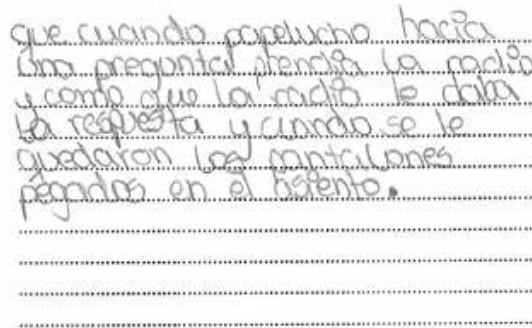 que cuando papelucho hacia
una pregunta prendia la radio
y como que la radio le daba
la respuesta y cuando se le
quedaron los pantalones
pegados en el asiento.